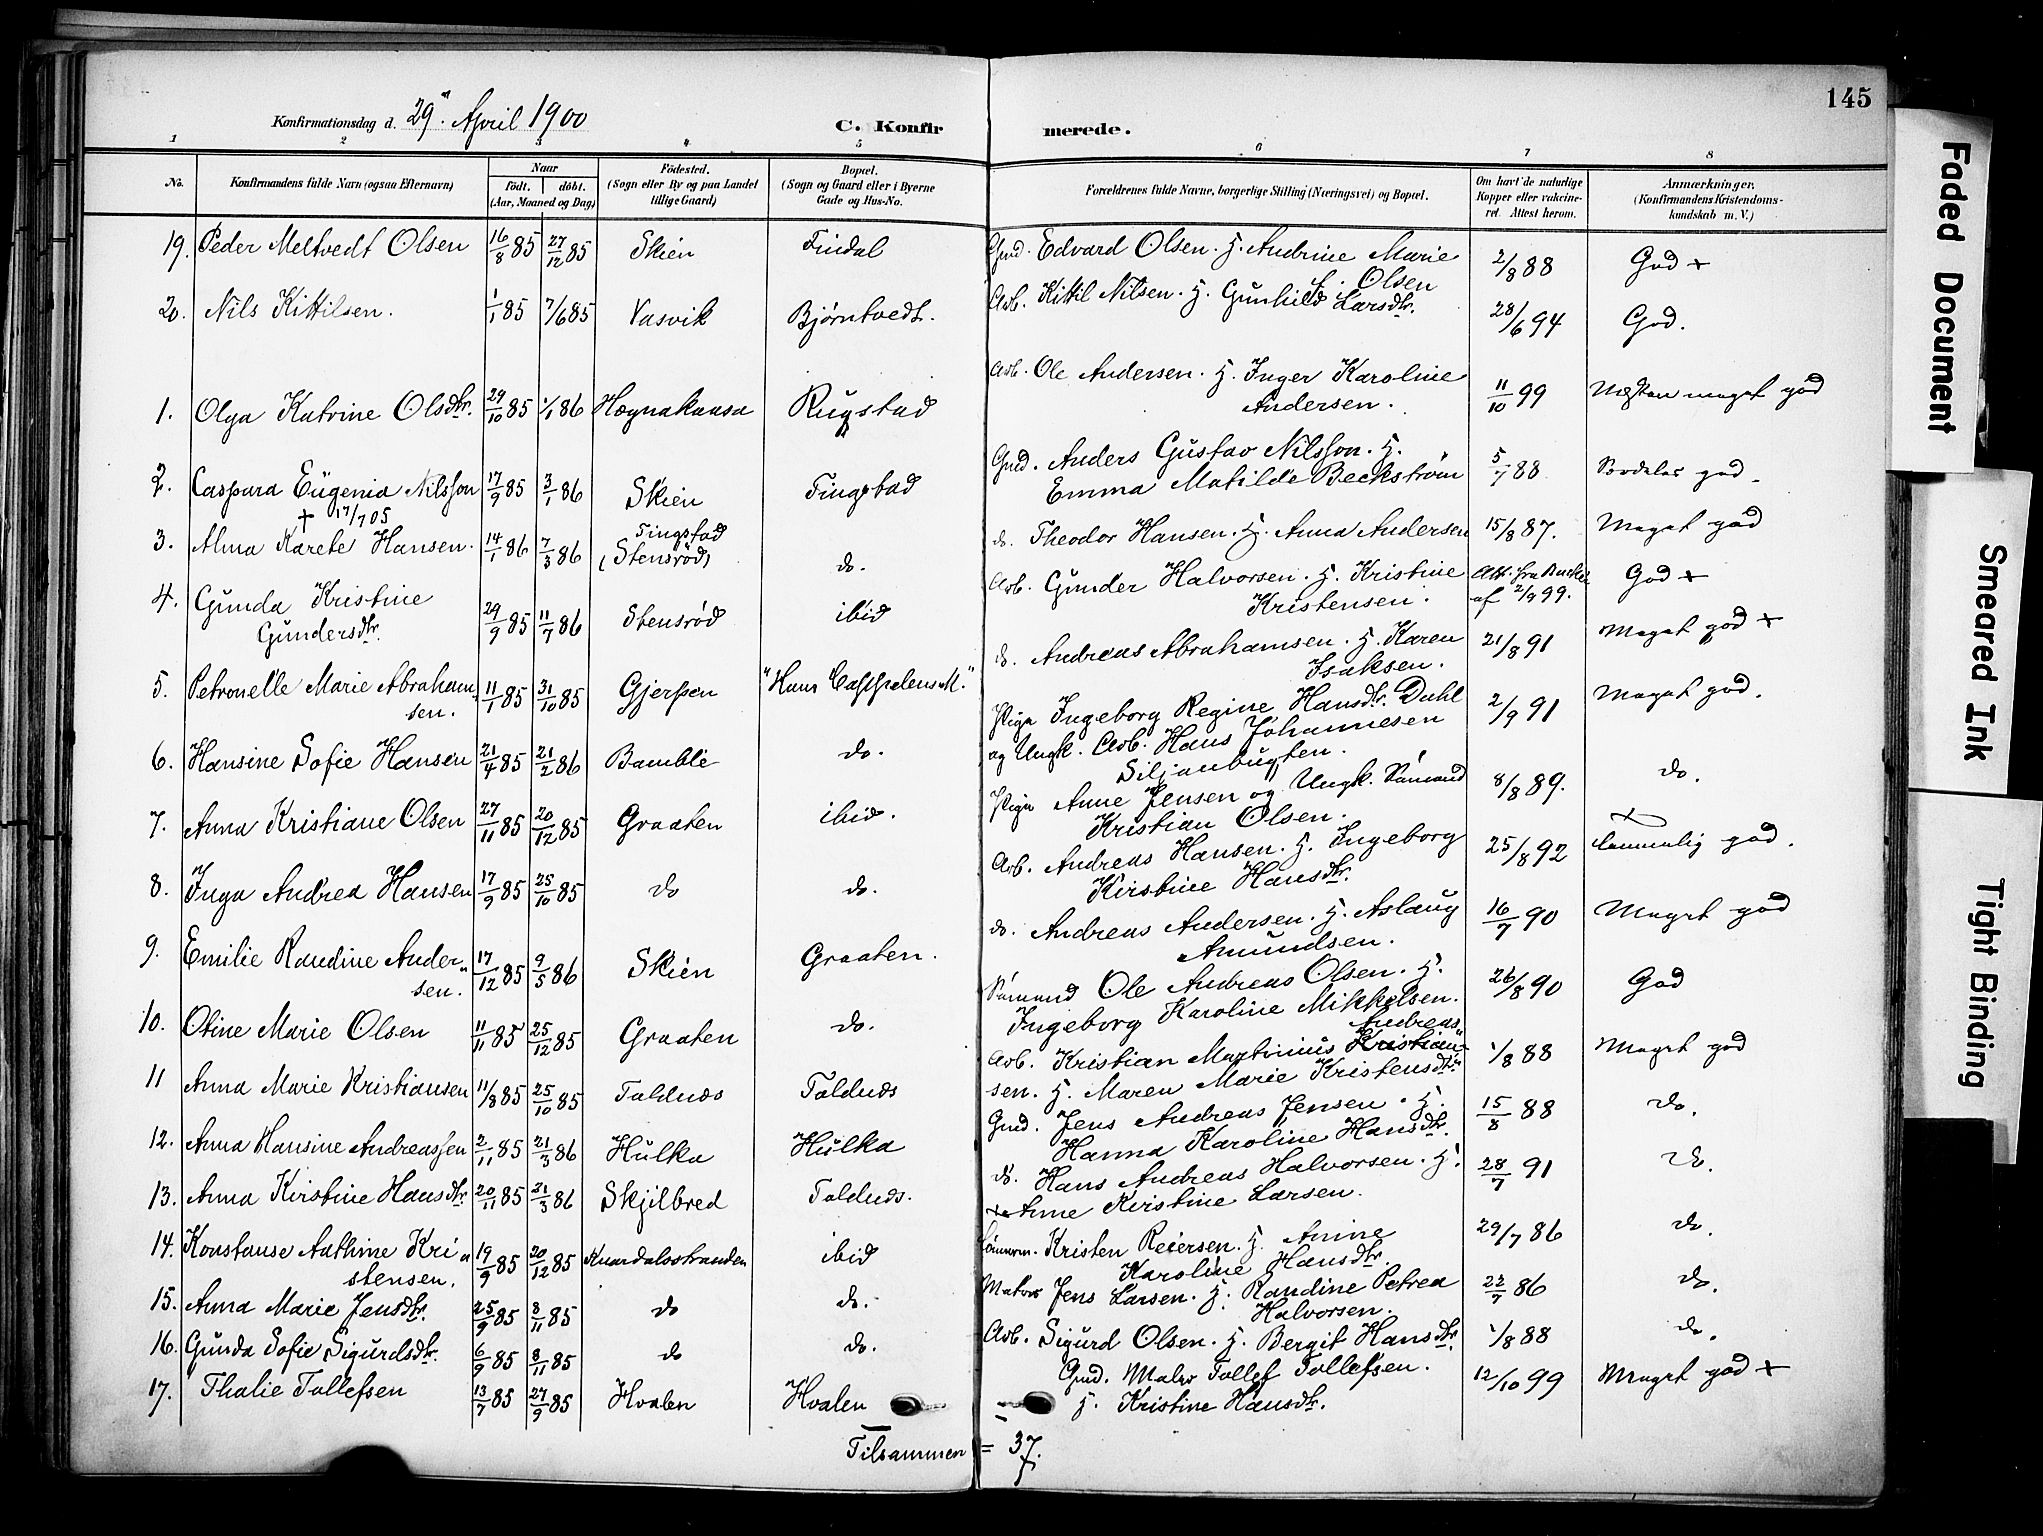 145
Konfirmationsdag d. 29de April 1900
C. Konfirmerede.
1 2 3 4 5 6 7 8
No.
Konfirmandens fulde Navn (ogsaa Efternavn)
Naar
födt. döbt.
(Aar, Maaned og Dag)
Födested.
(Sogn eller By og paa Landet
tillige Gaard)
Bopæl.
(Sogn og Gaard eller i Byerne
Gade og Hus-No.
Forældrenes fulde Navne, borgerlige Stilling (Næringsvei) og Bopæl.
Om havt de naturlige
Kopper eller vakcine-
ret. Attest herom.
Anmærkninger.
(Konfirmandens Kristendoms-
kundskab m. V.)
19. Peder Meltvedt Olsen 16/8 85 27/12 85 Skien Findal Gmd. Edvard Olsen. H. Andrine Marie L. Olsen 2/8 88 God +
20. Nils Kittilsen. 1/1 85 7/6 85 Vasvik Bjørntvedt. Arb. Kittil Nilsen. H. Gunhild Larsdtr. 28/6 94 God.
1. Olga Katrine Olsdtr. 29/10 85 1/1 86 Hægnakaasa Rugstad Arb. Ole Andersen. H. Inger Karoline
Andersen. 11/10 99 Næsten meget god
2. Caspara Eugenia Nilsson 17/9 85 3/1 86 Skien Tingstad Gmd. Anders Gustav Nilsson. H.
Emma Matilde Beckström 5/7 88 Særdeles god.
† 17/7 05
3. Alma Karete Hansen. 14/1 86 7/3 86 Tingstad
(Stensrød) do. do. Theodor Hansen. H. Anna Andersen 15/8 87. Meget god
4. Gunda Kristine
Gundersdtr. 29/9 85 11/7 86 Stensrød ibid Arb. Gunder Halvorsen. H. Kristine
Kristensen. Att. fra
af 2/9 99. God +
5. Petronelle Marie Abraham-
sen. 11/1 85 31/10 85 Gjerpen "Hans M." do. Andreas Abrahamsen. H. Karen
Isaksen. 21/8 91 Meget god +
6. Hansine Sofie Hansen 21/4 85 21/2 86 Bamble do. Pige Ingeborg Regine Hansdtr. Dahl
og Ungk. Arb. Hans Johannesen
Siljanbugten. 2/9 91 Meget god.
7. Anna Kristiane Olsen 27/11 85 20/12 85 Graaten ibid. Pige Anne Jensen og Ungk. Sømand
Kristian Olsen. 8/8 89. do.
8. Inga Andrea Hansen 17/9 85 25/10 85 do do. Arb. Andreas Hansen. H. Ingeborg
Kirstine Hansdtr. 25/8 92 +
Temmelig god.
9. Emilie Randine Ander-
sen. 17/12 85 9/5 86 Skien Graaten. do. Andreas Andersen. H. Aslaug
Amundsen. 16/7 90 Meget god
10. Otine Marie Olsen 11/11 85 25/12 85 Graaten do. Sømand Ole Andreas Olsen. H.
Ingeborg Karoline Mikkelsen. 26/8 90 God
11 Anna Marie Kristiansen 11/8 85 25/10 85 Toldnes Toldnes Arb. Kristian Martinius Andreas Kristian-
sen. H. Maren Marie Kristensdtr. 1/8 88 Meget god
12. Anna Hansine Andreassen 2/11 85 21/3 86 Hulka Hulka Gmd. Jens Andreas Jensen. H.
Hanna Karoline Hansdtr. 15/8 88 do.
13. Anna Kirstine Hansdtr. 20/11 85 21/3 86 Skjilbred Toldnes. do. Hans Andreas Halvorsen. H.
Anne Kirstine Larsen. 28/7 91 do.
14. Konstanse Aathine Kri-
stensen. 19/9 85 20/12 85 Knardalsstranden ibid Kristen Reiersen. H. Anine
Karoline Hansdtr. 29/7 86 do.
15. Anna Marie Jensdtr. 25/9 85 8/11 85 do do. Matros Jens Larsen. H. Randine Petrea
Halvorsen. 22/7 86 do.
16. Gunda Sofie Sigurdsdtr. 6/9 85 8/11 85 do do. Arb. Sigurd Olsen. H. Bergit Hansdtr. 1/8 88 do.
17. Thalie Tollefsen 13/7 85 27/9 85 Hvalen Hvalen Gmd. Maler Tollef Tollefsen.
H. Kristine Hansdtr. 12/10 99 Meget god +
Tilsammen = 37.
Faded Document
Smeared Ink
Tight Binding